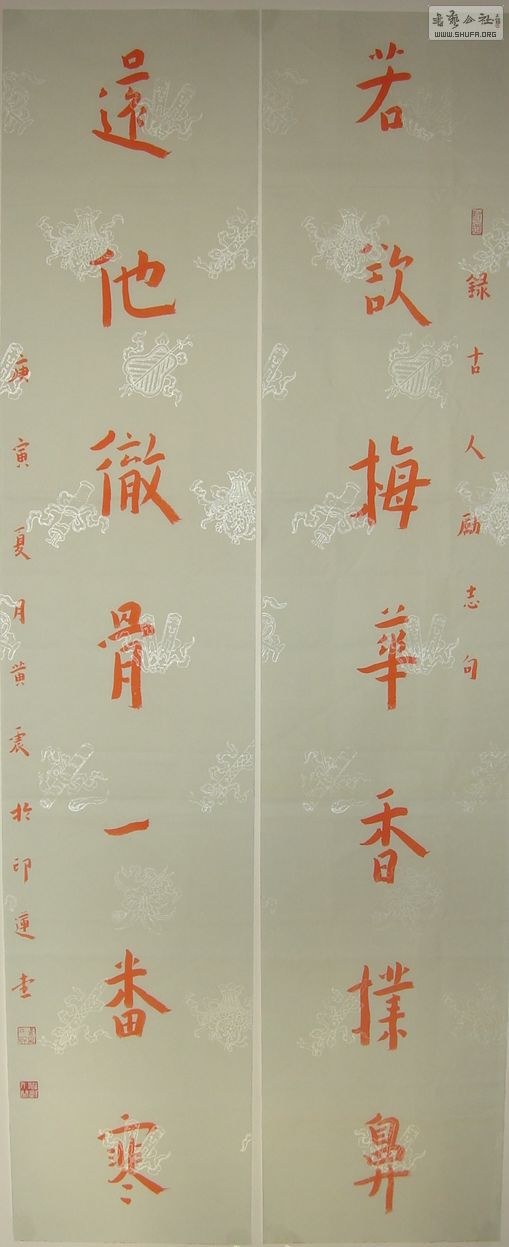 書藝公社
WWW.SHUFA.ORG
錄古人勵志句
若欲梅華香撲鼻
還他徹骨一番寒
庚寅夏月黃震於印蓮堂